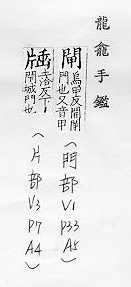 龍龕手鑑
閘 烏甲反開閇
門也又音甲
(門部 V1 P33 A5)
牐 士洽反下
閇城門也
(片部 V3 P7 A4)